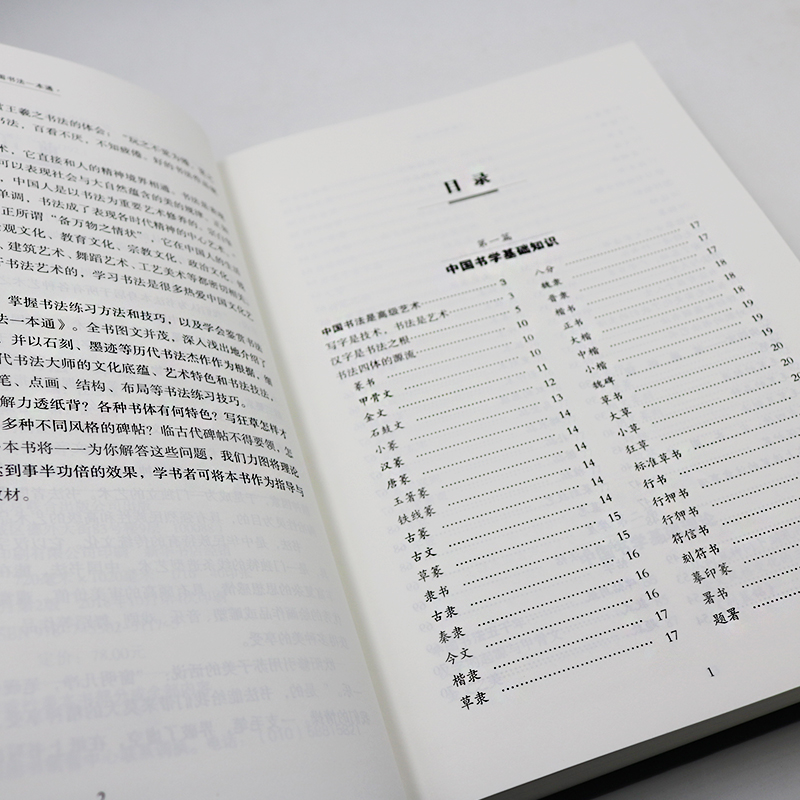 书法一本通·
王羲之书法的体会:“玩之不觉为倦,
书法,百看不厌,不知疲倦。好的书法作
术,它直接和人的精神境界相通。书法是
可以表现社会与大自然蕴含的美的规律。
,中国人是以书法为重要艺术修养的。
单调,书法成了表现各时代精神的中心艺术。
正所谓“备万物之情状”,它在中国人的生活
观文化、教育文化、宗教文化、政治文化、
、建筑艺术、舞蹈艺术、工艺美术等都密切相关。
于书法艺术的,学习书法是很多热爱中国文化之
掌握书法练习方法和技巧,以及学会鉴赏书法
法一本通》。全书图文并茂,深入浅出地介绍了
,并以石刻、墨迹等历代书法杰作作为根据,
代书法大师的文化底蕴、艺术特色和书法技法,
笔、点画、结构、布局等书法练习技巧。
解力透纸背?各种书体有何特色?写狂草怎样才
多种不同风格的碑帖?临古代碑帖不得要领,怎
本书将一一为你解答这些问题,我们力图将理论
达到事半功倍的效果,学书者可将本书作为指导与
教材。
2
目 录
第一篇
中国书学基础知识
中国书法是高级艺术 3
写字是技术,书法是艺术 3
汉字是书法之根 5
书法四体的源流 10
篆书 10
甲骨文 10
金文 11
石鼓文 12
小篆 13
汉篆 14
唐篆 14
玉箸篆 14
铁线篆 14
古篆 14
古文 14
草篆 15
隶书 15
古隶 16
秦隶 16
今文 16
楷隶 17
草隶 17
八分 17
魏隶 17
晋隶 18
楷书 18
正书 18
大楷 19
中楷 19
小楷 19
魏碑 20
草书 20
大草 20
小草
狂草
标准草书
行书
行押书
行狎书
符信书
刻符书
摹印篆
署书
题署
1